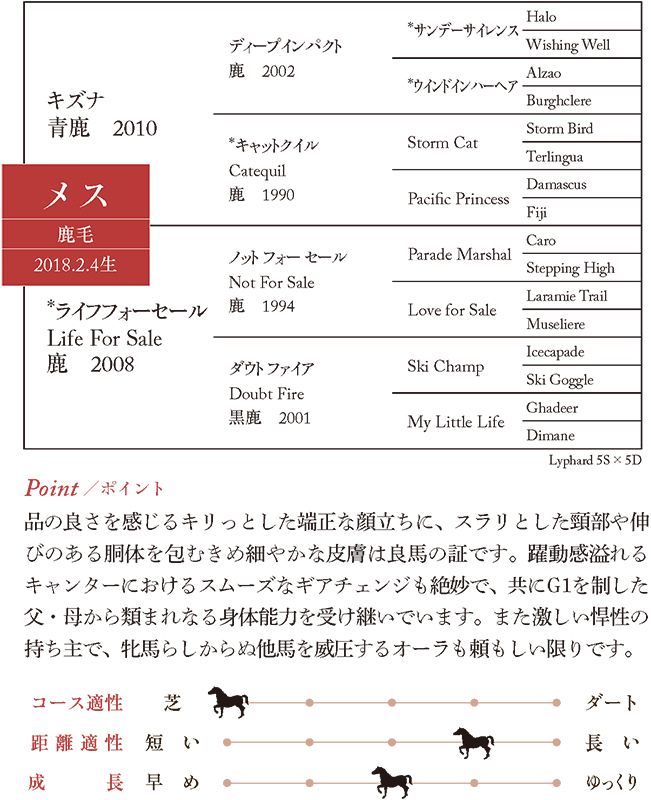 キズナ
青鹿 2010
メス
鹿毛
2018.2.4生
*ライフフォーセール
Life For Sale
鹿 2008
ディープインパクト
鹿 2002
*キャットクイル
Catequil
鹿 1990
ノット フォー セール
Not For Sale
鹿 1994
ダウト ファイア
Doubt Fire
黒鹿 2001
*サンデーサイレンス
*ウインドインハーヘア
Storm Cat
Pacific Princess
Parade Marshal
Love for Sale
Ski Champ
My Little Life
Halo
Wishing Well
Alzao
Burghclere
Storm Bird
Terlingua
Damascus
Fiji
Caro
Stepping High
Laramie Trail
Museliere
Icecapade
Ski Goggle
Ghadeer
Dimane
Lyphard 5S×5D
Point／ポイント
品の良さを感じるキリっとした端正な顔立ちに、スラリとした頸部や伸
びのある胴体を包むきめ細やかな皮膚は良馬の証です。躍動感溢れる
キャンターにおけるスムーズなギアチェンジも絶妙で、共にG1を制した
父・母から類まれなる身体能力を受け継いでいます。また激しい悍性の
持ち主で、牝馬らしからぬ他馬を威圧するオーラも頼もしい限りです。
コース適性 芝 ダート
距離適性 短い 長い
成長 早め ゆっくり